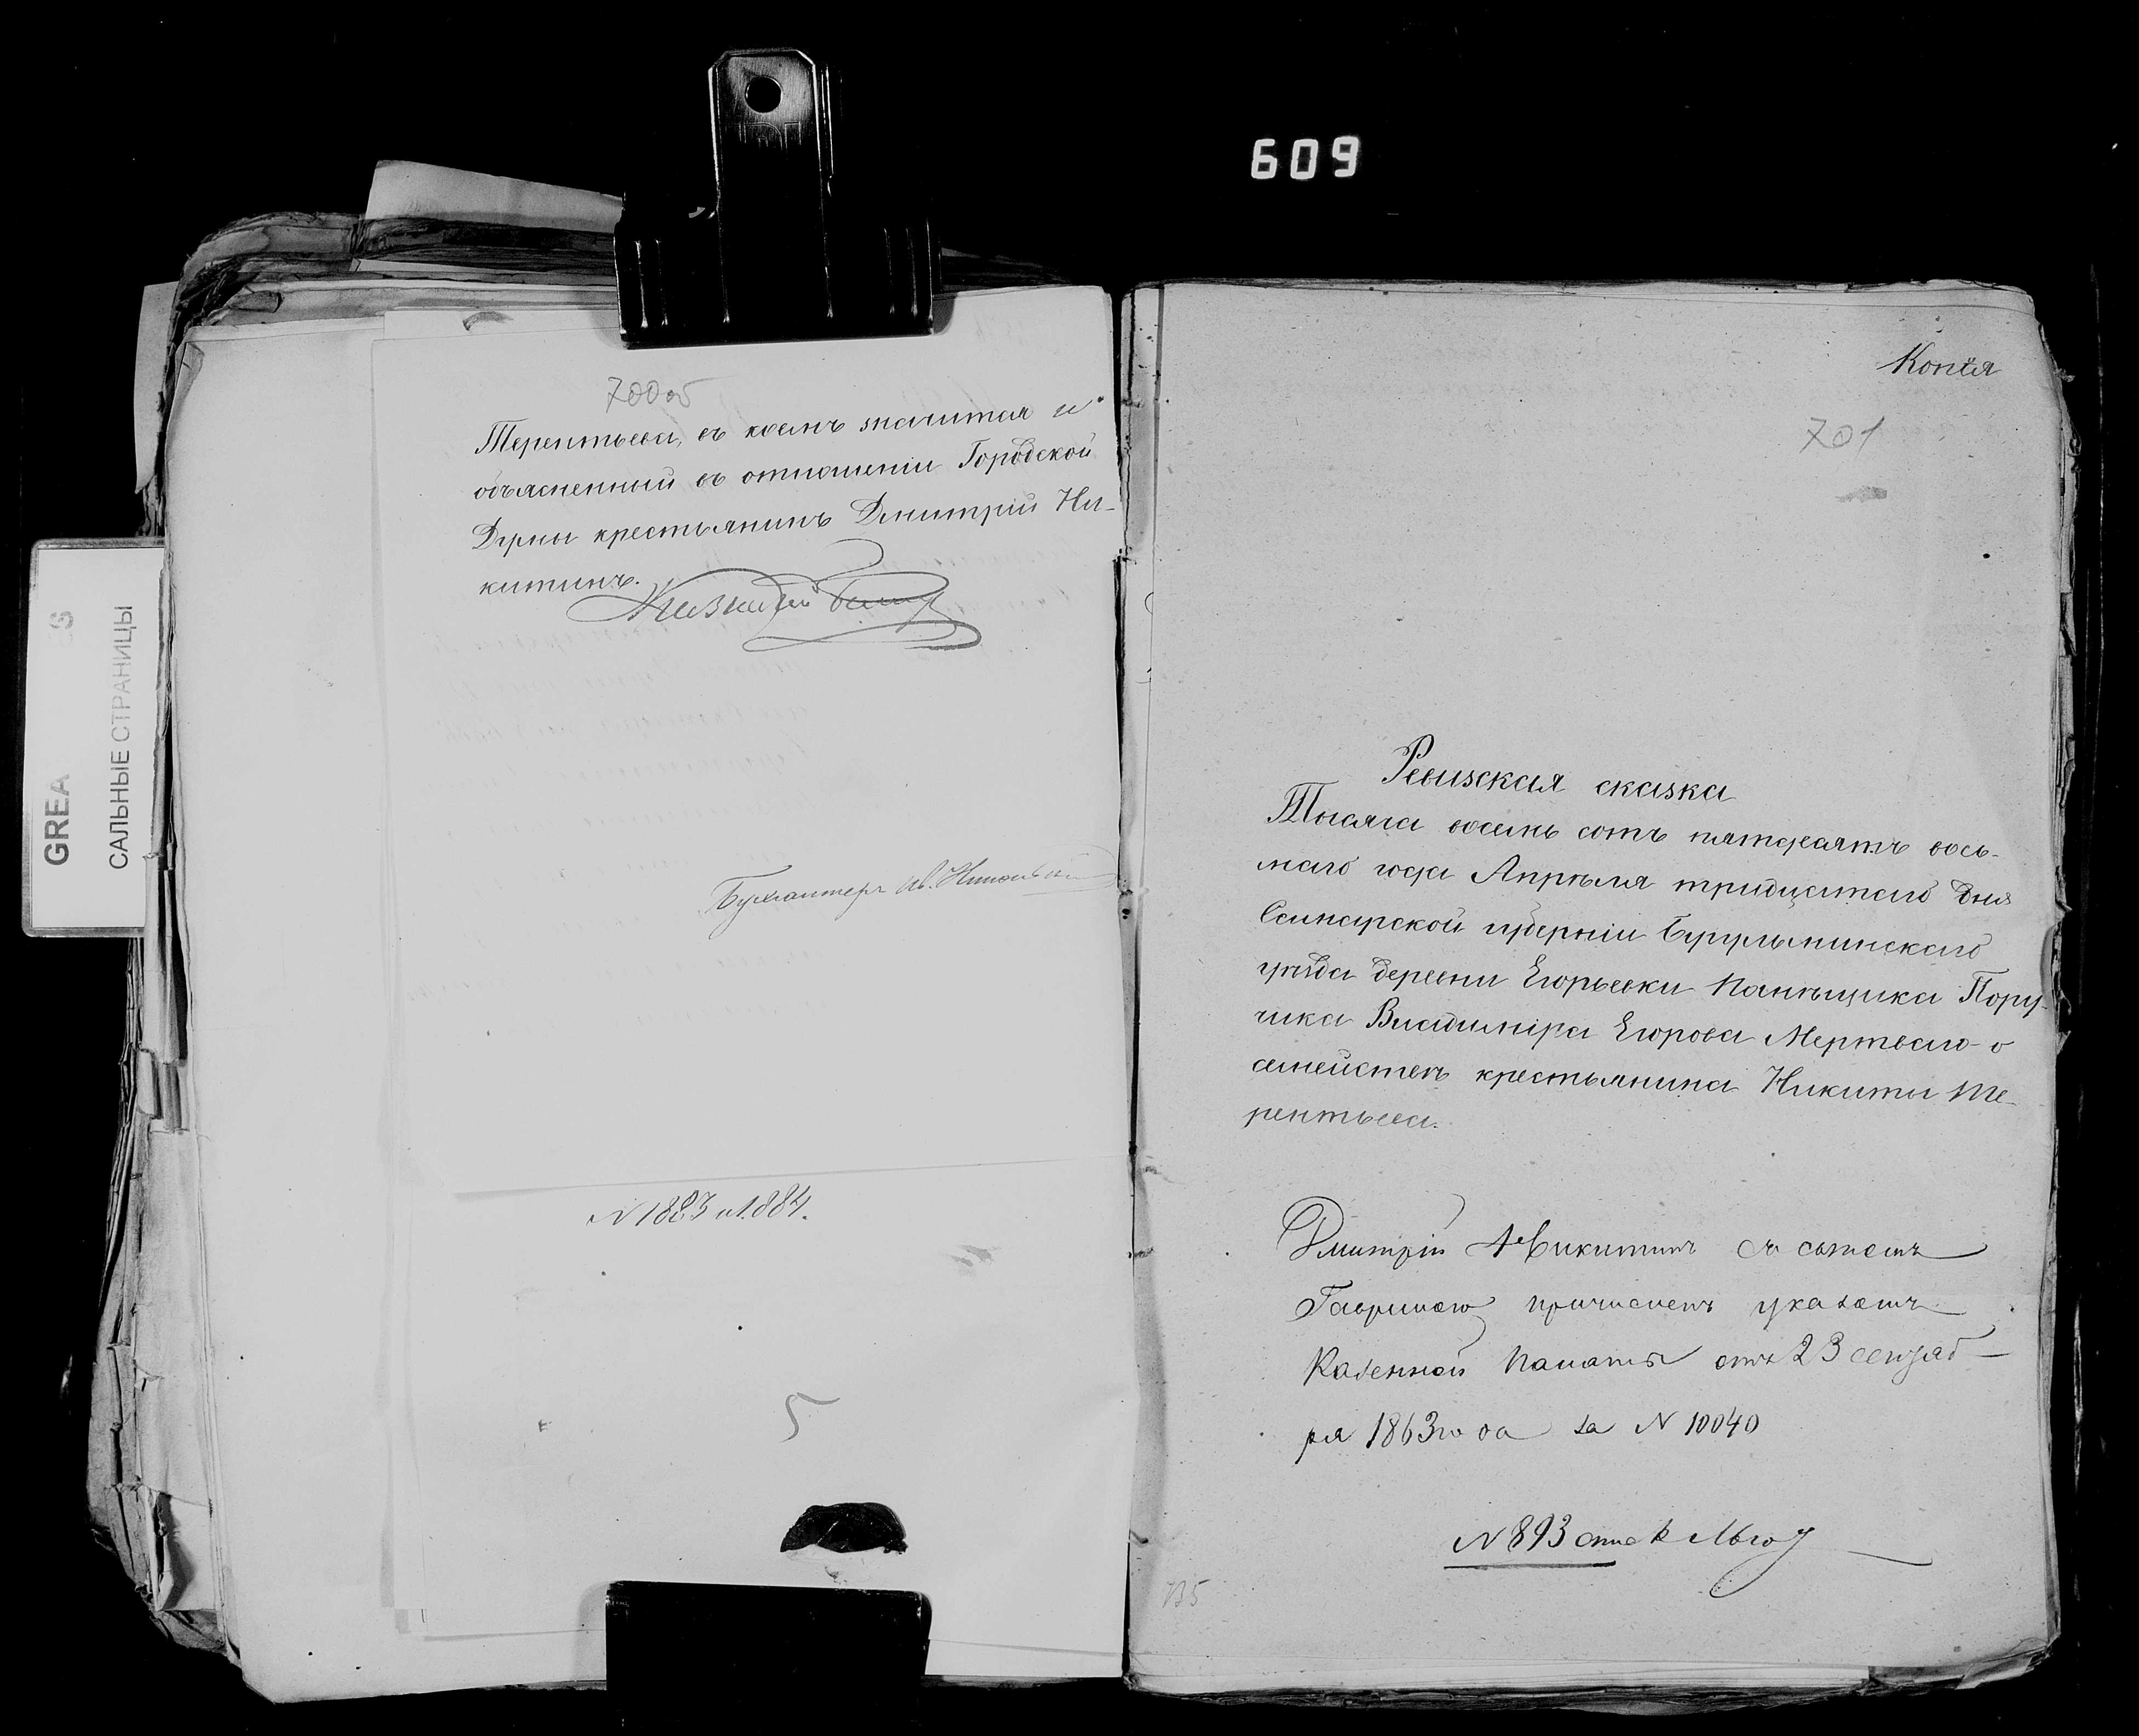 609
GREA
САЛЬНЫЕ СТРАНИЦЫ
700об
Терентьева, въ коемъ значится и
объясненный въ отношеніи Городской
Думы крестьянинъ Дмитрій Ни-
китинъ.
Бухгалтеръ Ив.
N 1883 и 1884.
5
Копія
701
Ревизская сказка
Тысяча восемь сотъ пятьдесятъ вось-
маго года Апрѣля тридцатаго дня
Самарской губерніи Бугульминскаго
уѣзда деревни Егорьевки Помѣщика Пору-
чика Владиміра Егорова Мертваго о
семействѣ крестьянина Никиты Те-
рентьева.
Дмитрій Никитинъ съ сыномъ
Гавриломъ причисленъ указомъ
Казенной Палаты отъ 23 сентяб-
ря 1863 года за N 10040
N 893
735